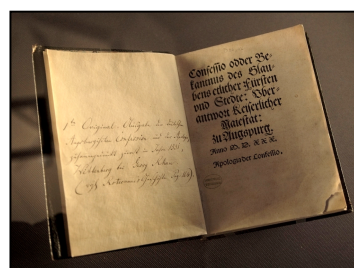 1te Original-Ausgabe der deutschen
Augsburgischen Confession und der Apologie,
Wittenberg bei Georg Rhau
Confessio odder Be-
kantnus des Glau-
bens etlicher Fürsten
vnd Stedte: Vber-
antwort Keiserlicher
Maiestat:
zu Augspurg.
Anno M. D. XXX.
Apologia der Confessio.